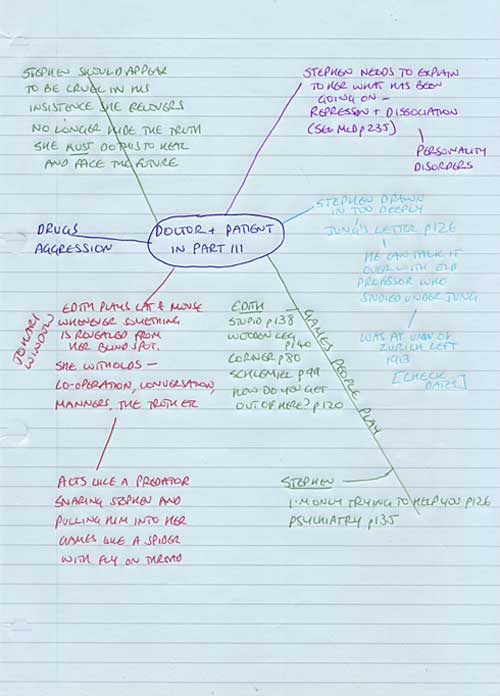 STEPHEN SHOULD APPEAR
TO BE CRUEL IN HIS
INSISTENCE SHE RECOVERS
NO LONGER HIDE THE TRUTH
SHE MUST DO THIS TO HEAL
AND FACE THE FUTURE
STEPHEN NEEDS TO EXPLAIN
TO HER WHAT HAS BEEN
GOING ON –
REPRESSION + DISSOCIATION
(SEE McD p235)
PERSONALITY
DISORDERS
DRUGS
AGGRESSION
DOCTOR + PATIENT
IN PART III
STEPHEN DRAWN
IN TOO DEEPLY
JUNG'S LETTER p126
HE CAN TALK IT
OVER WITH OLD
PROFESSOR WHO
STUDIED UNDER JUNG
WAS AT UNIV OF
ZURICH LEFT
1913
[CHECK
DATES]
JOHARI
WINDOW
EDITH PLAYS CAT & MOUSE
WHENEVER SOMETHING
IS REVEALED FROM
HER BLIND SPOT.
SHE WITHOLDS –
CO-OPERATION, CONVERSATION,
MANNERS, THE TRUTH ETC
ACTS LIKE A PREDATOR
SNARING STEPHEN AND
PULLING HIM INTO HER
GAMES LIKE A SPIDER
WITH FLY ON THREAD
GAMES PEOPLE PLAY
EDITH –
STUPID p138
WOODEN LEG
p140
CORNER p80
SCHLEMIEL p99
HOW DO YOU GET
OUT OF HERE? p120
STEPHEN
I'M ONLY TRYING TO HELP YOU p126
PSYCHIATRY p135